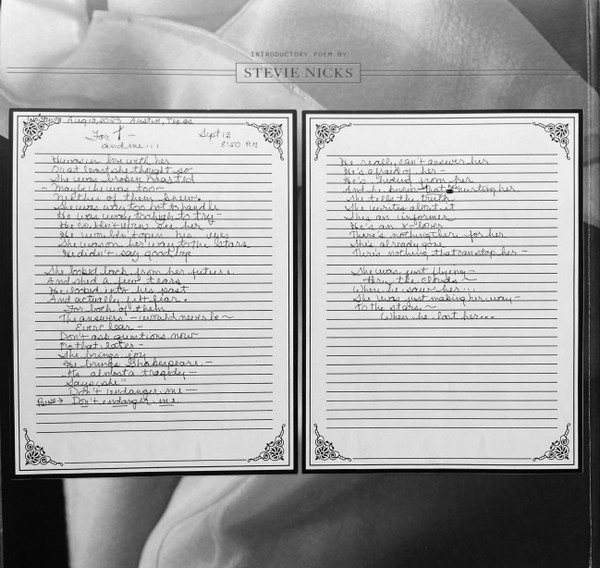 INTRODUCTORY POEM BY
STEVIE NICKS
Written Aug 13, 2023 Austin, Texas
For T –
and me...
Sept 13
8:50 PM
He was in love with her
Or at least she thought so
She was broken hearted
– Maybe he was too –
Neither of them knew.
She was way too hot to handle
He was way too high to try –
He couldn't even see her
He wouldn't open his eyes
She was on her way to the stars
He didn't say goodbye
She looked back from her future
And shed a few tears
He looked into his past
And actually felt fear.
For both of them
The answers – would never be –
Ever clear –
Don't ask questions now
Do that later –
She brings joy
He brings Shakespeare –
It's almost a tragedy –
Says she"
Don't endanger me –
Don't endanger me.
He really can't answer her
He's afraid of her –
He's hiding from her
And he knows that he's hurting her
She tells the truth
She writes about it
She's an informer
He's an x-lover
There's nothing there for her
She's already gone
There's nothing that can stop her –
She was just flying –
thru the clouds
When he saw her...
She was just making her way –
To the stars –
When he lost her...